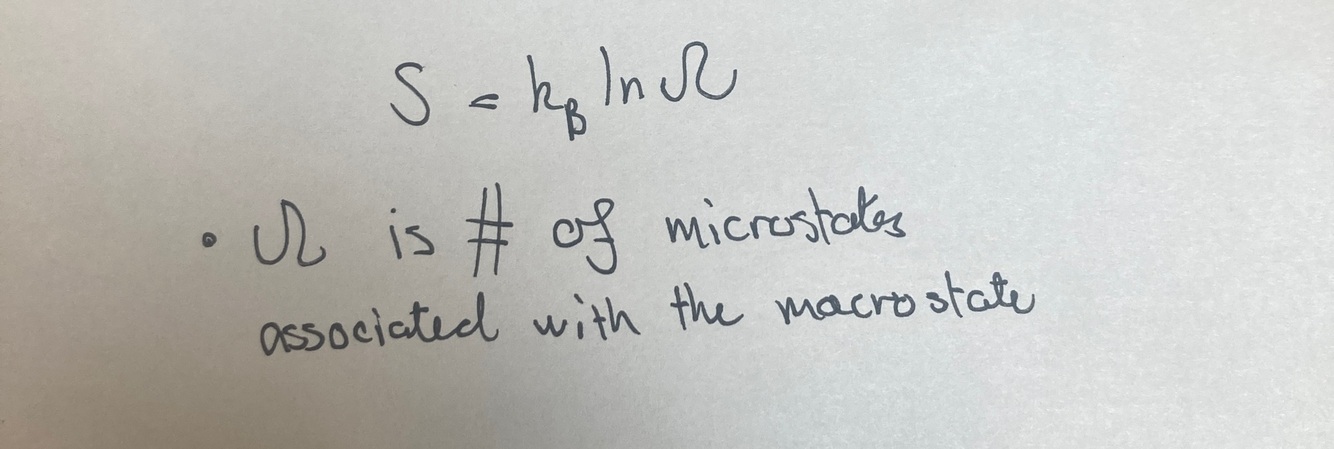 S = k_B ln Ω
• Ω is # of microstates
associated with the macrostate